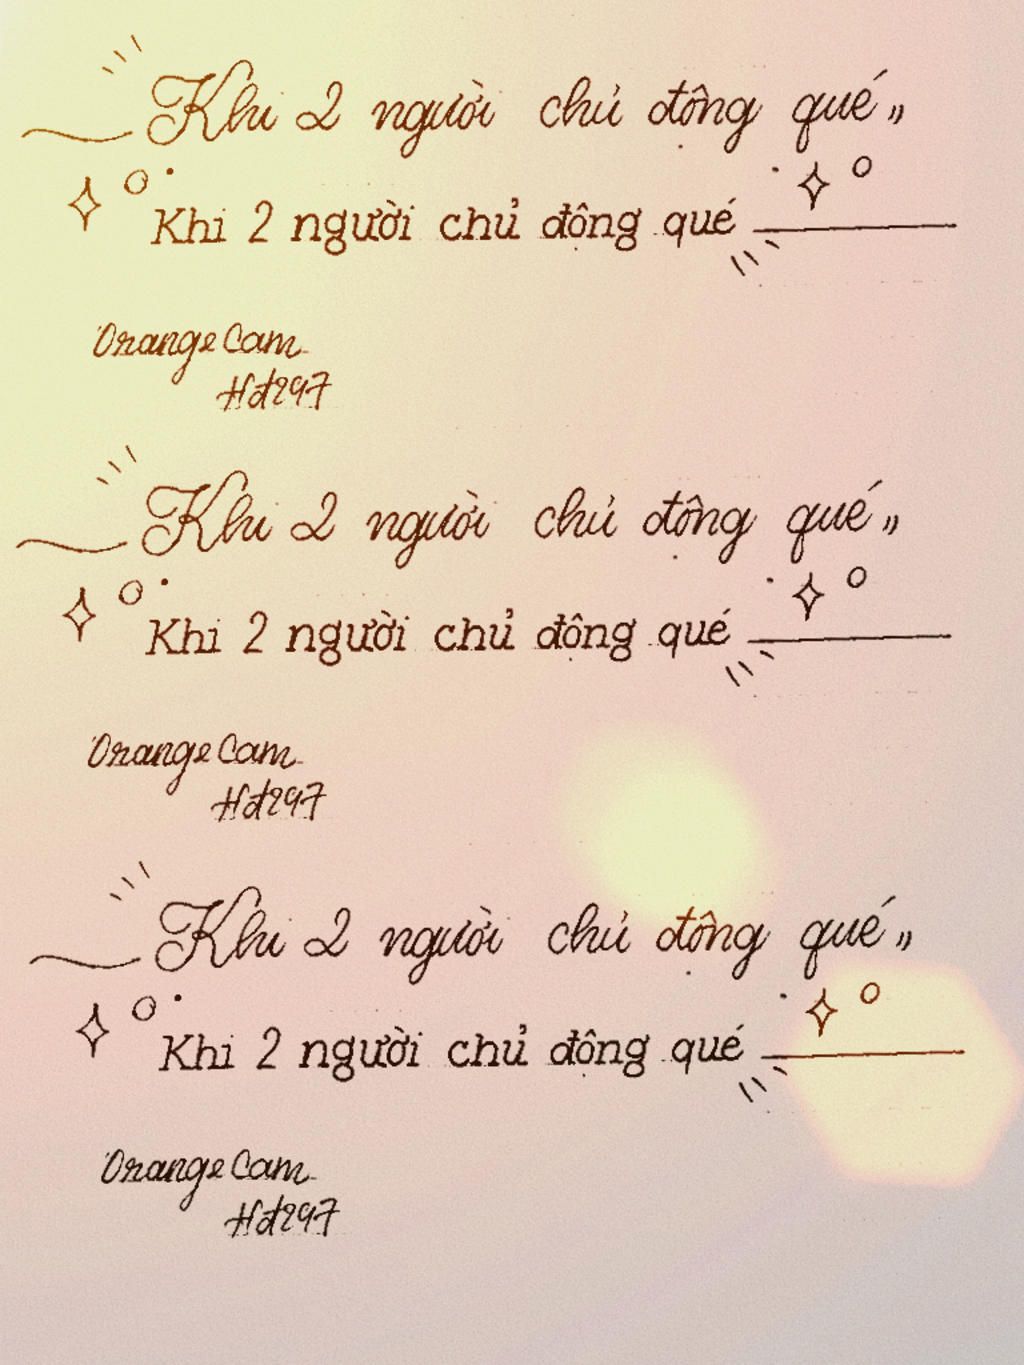 Khi 2 người chủ động qué "
Khi 2 người chủ động qué
Orange Cam
Hđ297
Khi 2 người chủ động qué "
Khi 2 người chủ động qué
Orange Cam
Hđ297
Khi 2 người chủ động qué "
Khi 2 người chủ động qué
Orange Cam
Hđ297